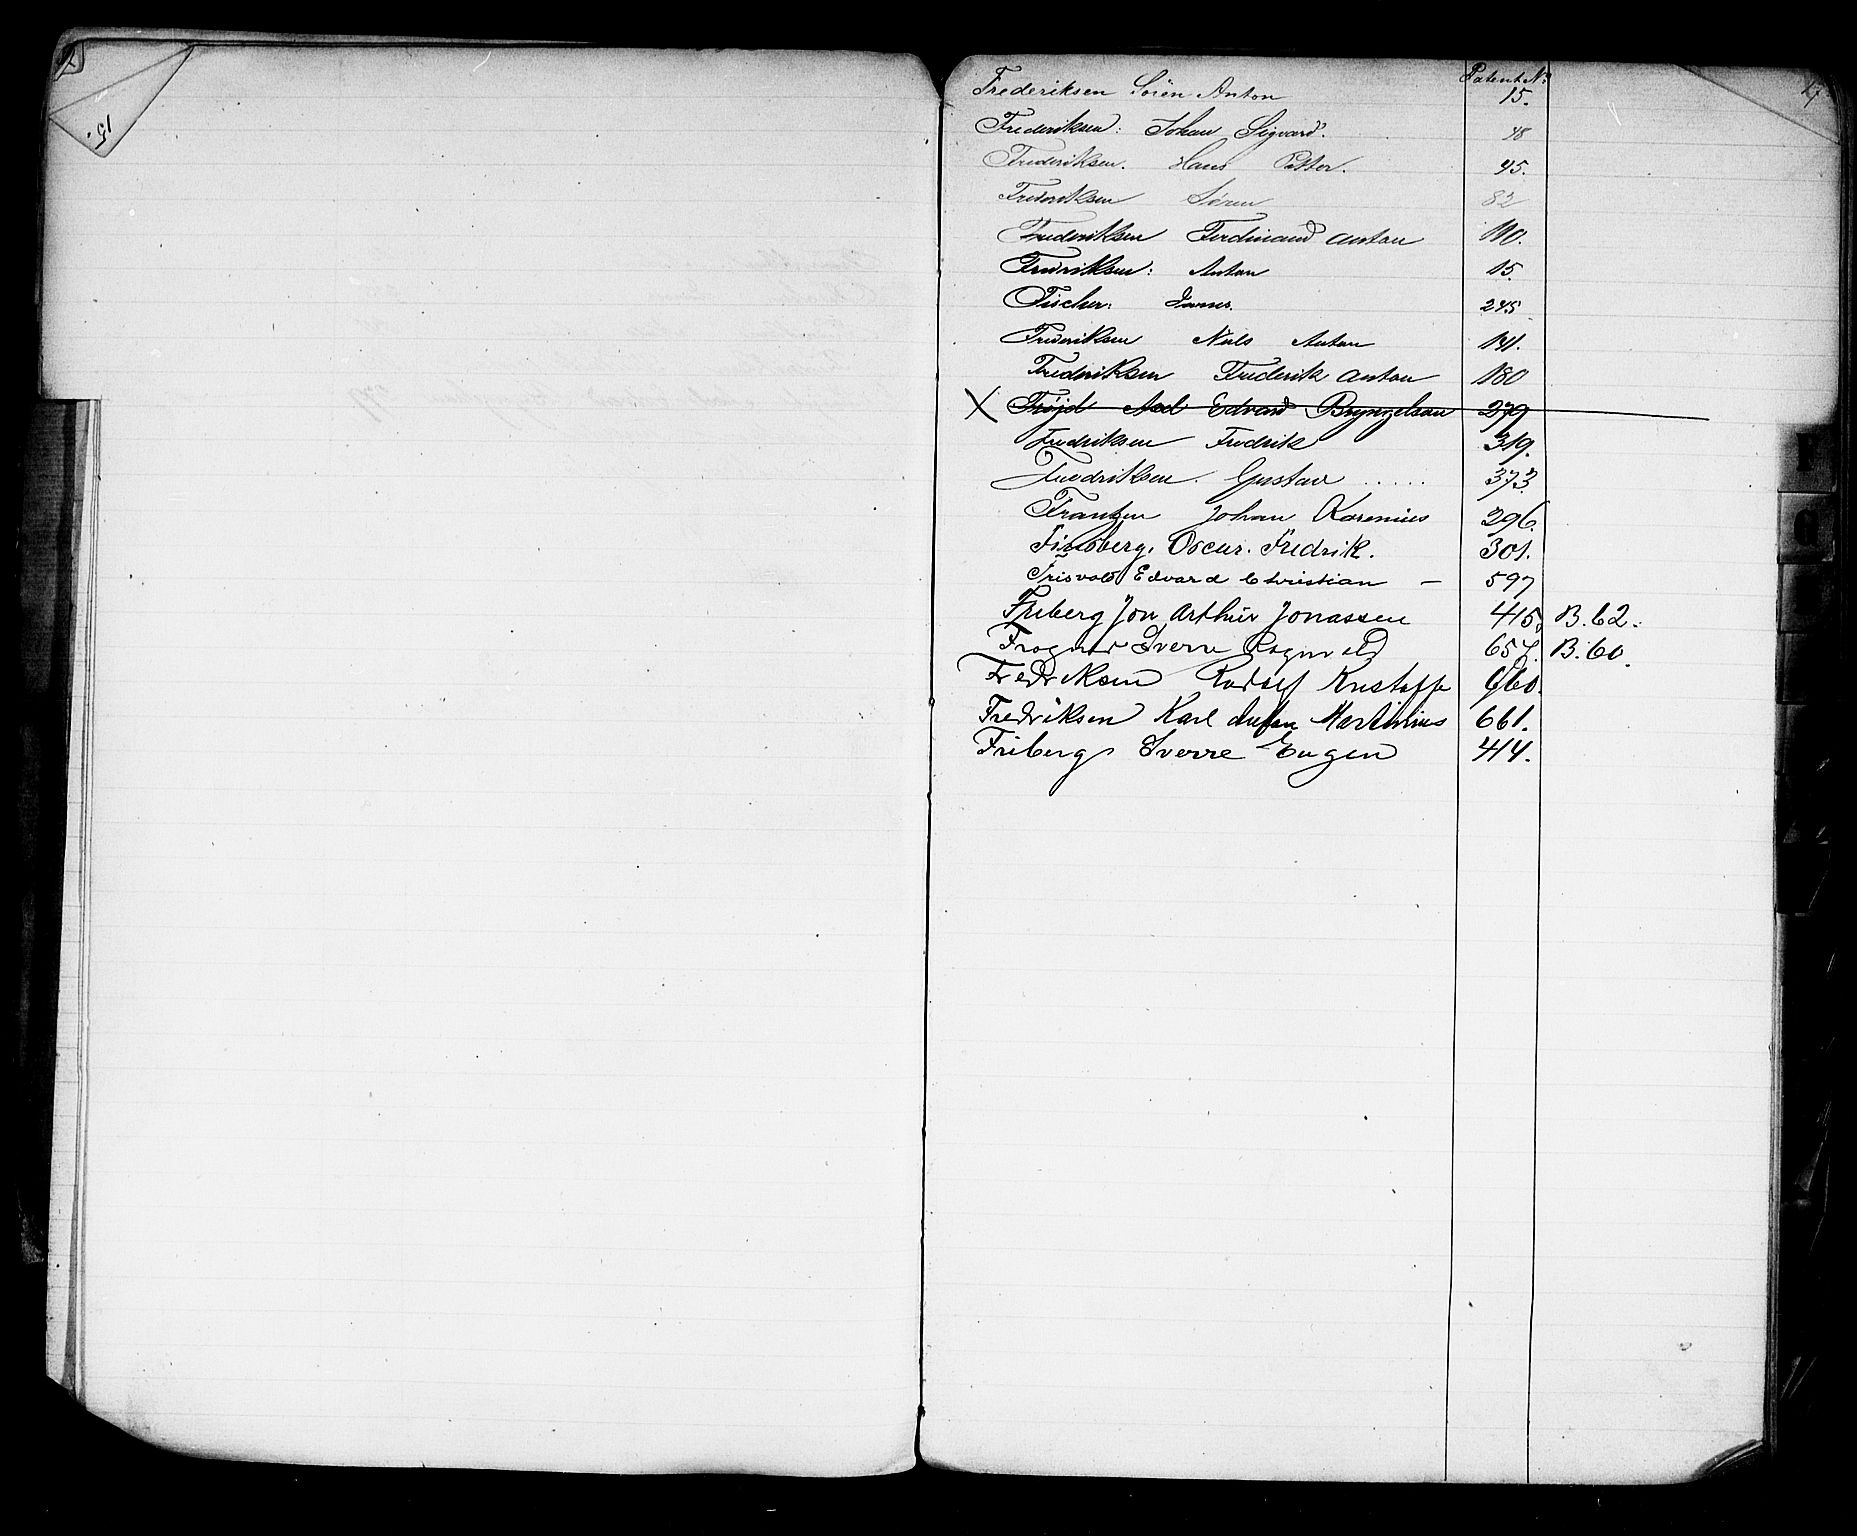 15.
Patent No
Frederiksen Sören Anton 15.
Frederiksen: Johan Sigvard. 48
Frederiksen. Hans Petter. 45.
Frederiksen Sören 82
Frederiksen Ferdinand Anton 110.
Fredriksen: Anton 15.
Fischer: 245
Frederiksen Nils Anton 141.
Frederiksen Frederik Anton 180
X Fröjd Axel Edvard Bryngelsson 279
Fredriksen Fredrik 319.
Fredriksen. Gustav ..... 373.
Frantzen Johan Karenius 296.
Finsberg. Oscar. Fredrik. 301.
Frisvold Edvard Christian – 597
Friberg Jon Arthur Jonassen 415. B. 62.
Frogner Sverre Ragnvald 657. B. 60.
Fredriksen Rudolf Kristoffe 660.
Fredriksen Karl Anton Martinius 661.
Friberg Sverre Eugen 414.
F
G